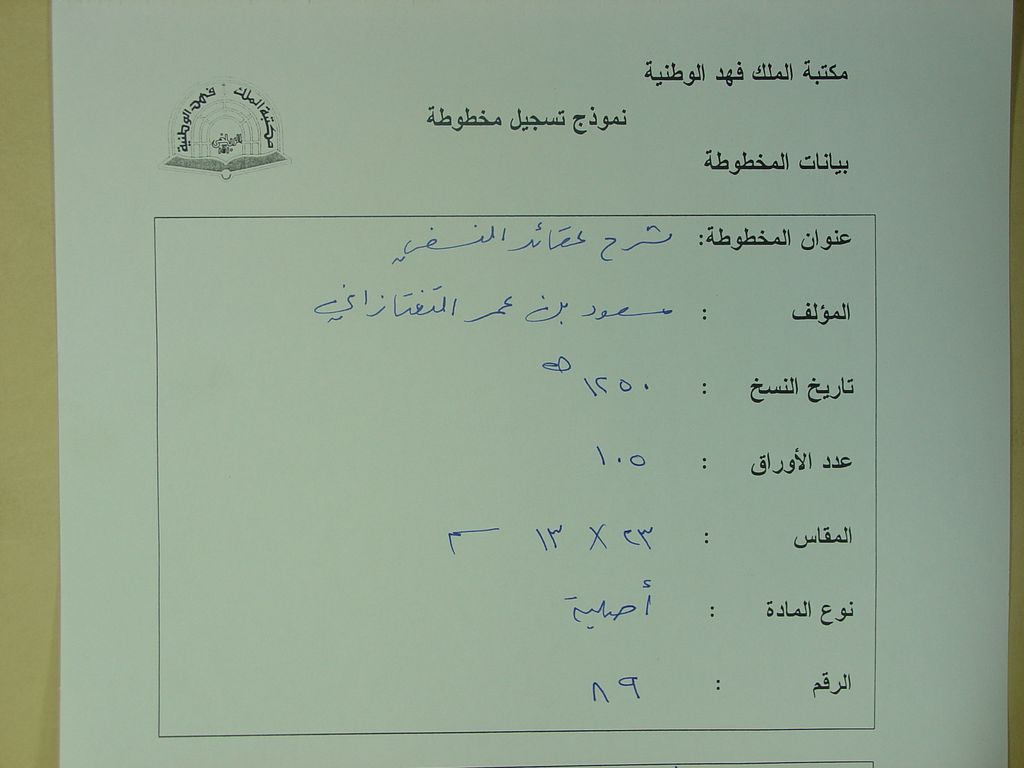 مكتبة الملك فهد الوطنية
مكتبة الملك فهد الوطنية
الرياض
نموذج تسجيل مخطوطة
بيانات المخطوطة
عنوان المخطوطة: شرح عقائد النسفي
المؤلف : مسعود بن عمر التفتازاني
تاريخ النسخ : ١٢٥٠ هـ
عدد الأوراق : ١٠٥
المقاس : ٢٣ X ١٣ سم
نوع المادة : أصلية
الرقم : ٨٩